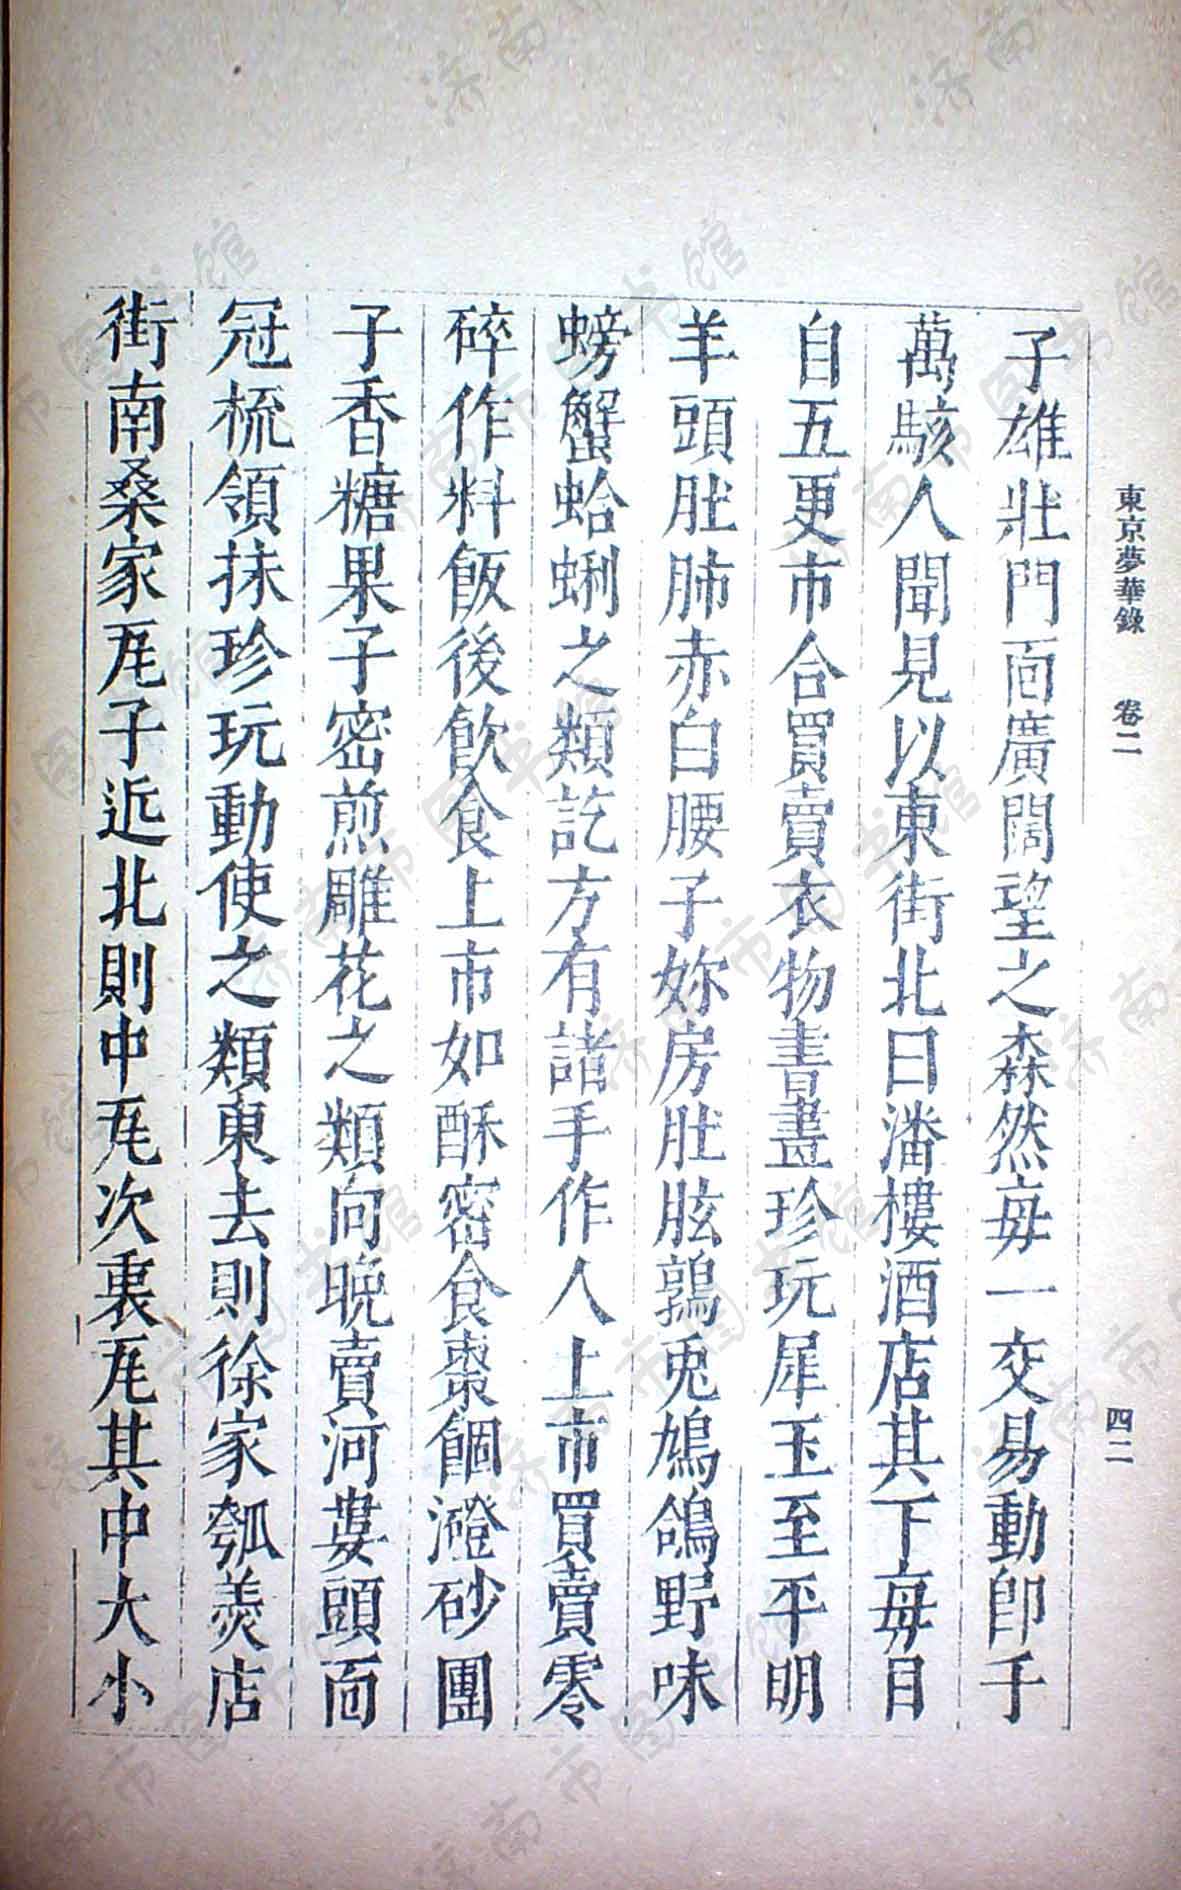 東京夢華錄 卷二 四二
子雄壯門面廣闊望之森然每一交易動即千
萬駭人聞見以東街北曰潘樓酒店其下每日
自五更市合買賣衣物書畫珍玩犀玉至平明
羊頭肚肺赤白腰子妳房肚胘鶉兎鳩鴿野味
螃蟹蛤蜊之類訖方有諸手作人上市買賣零
碎作料飯後飲食上市如酥密食棗䭅澄砂團
子香糖果子密煎雕花之類向晚賣河婁頭面
冠梳領抹珍玩動使之類東去則徐家瓠羹店
街南桑家瓦子近北則中瓦次裏瓦其中大小
济南市图书馆